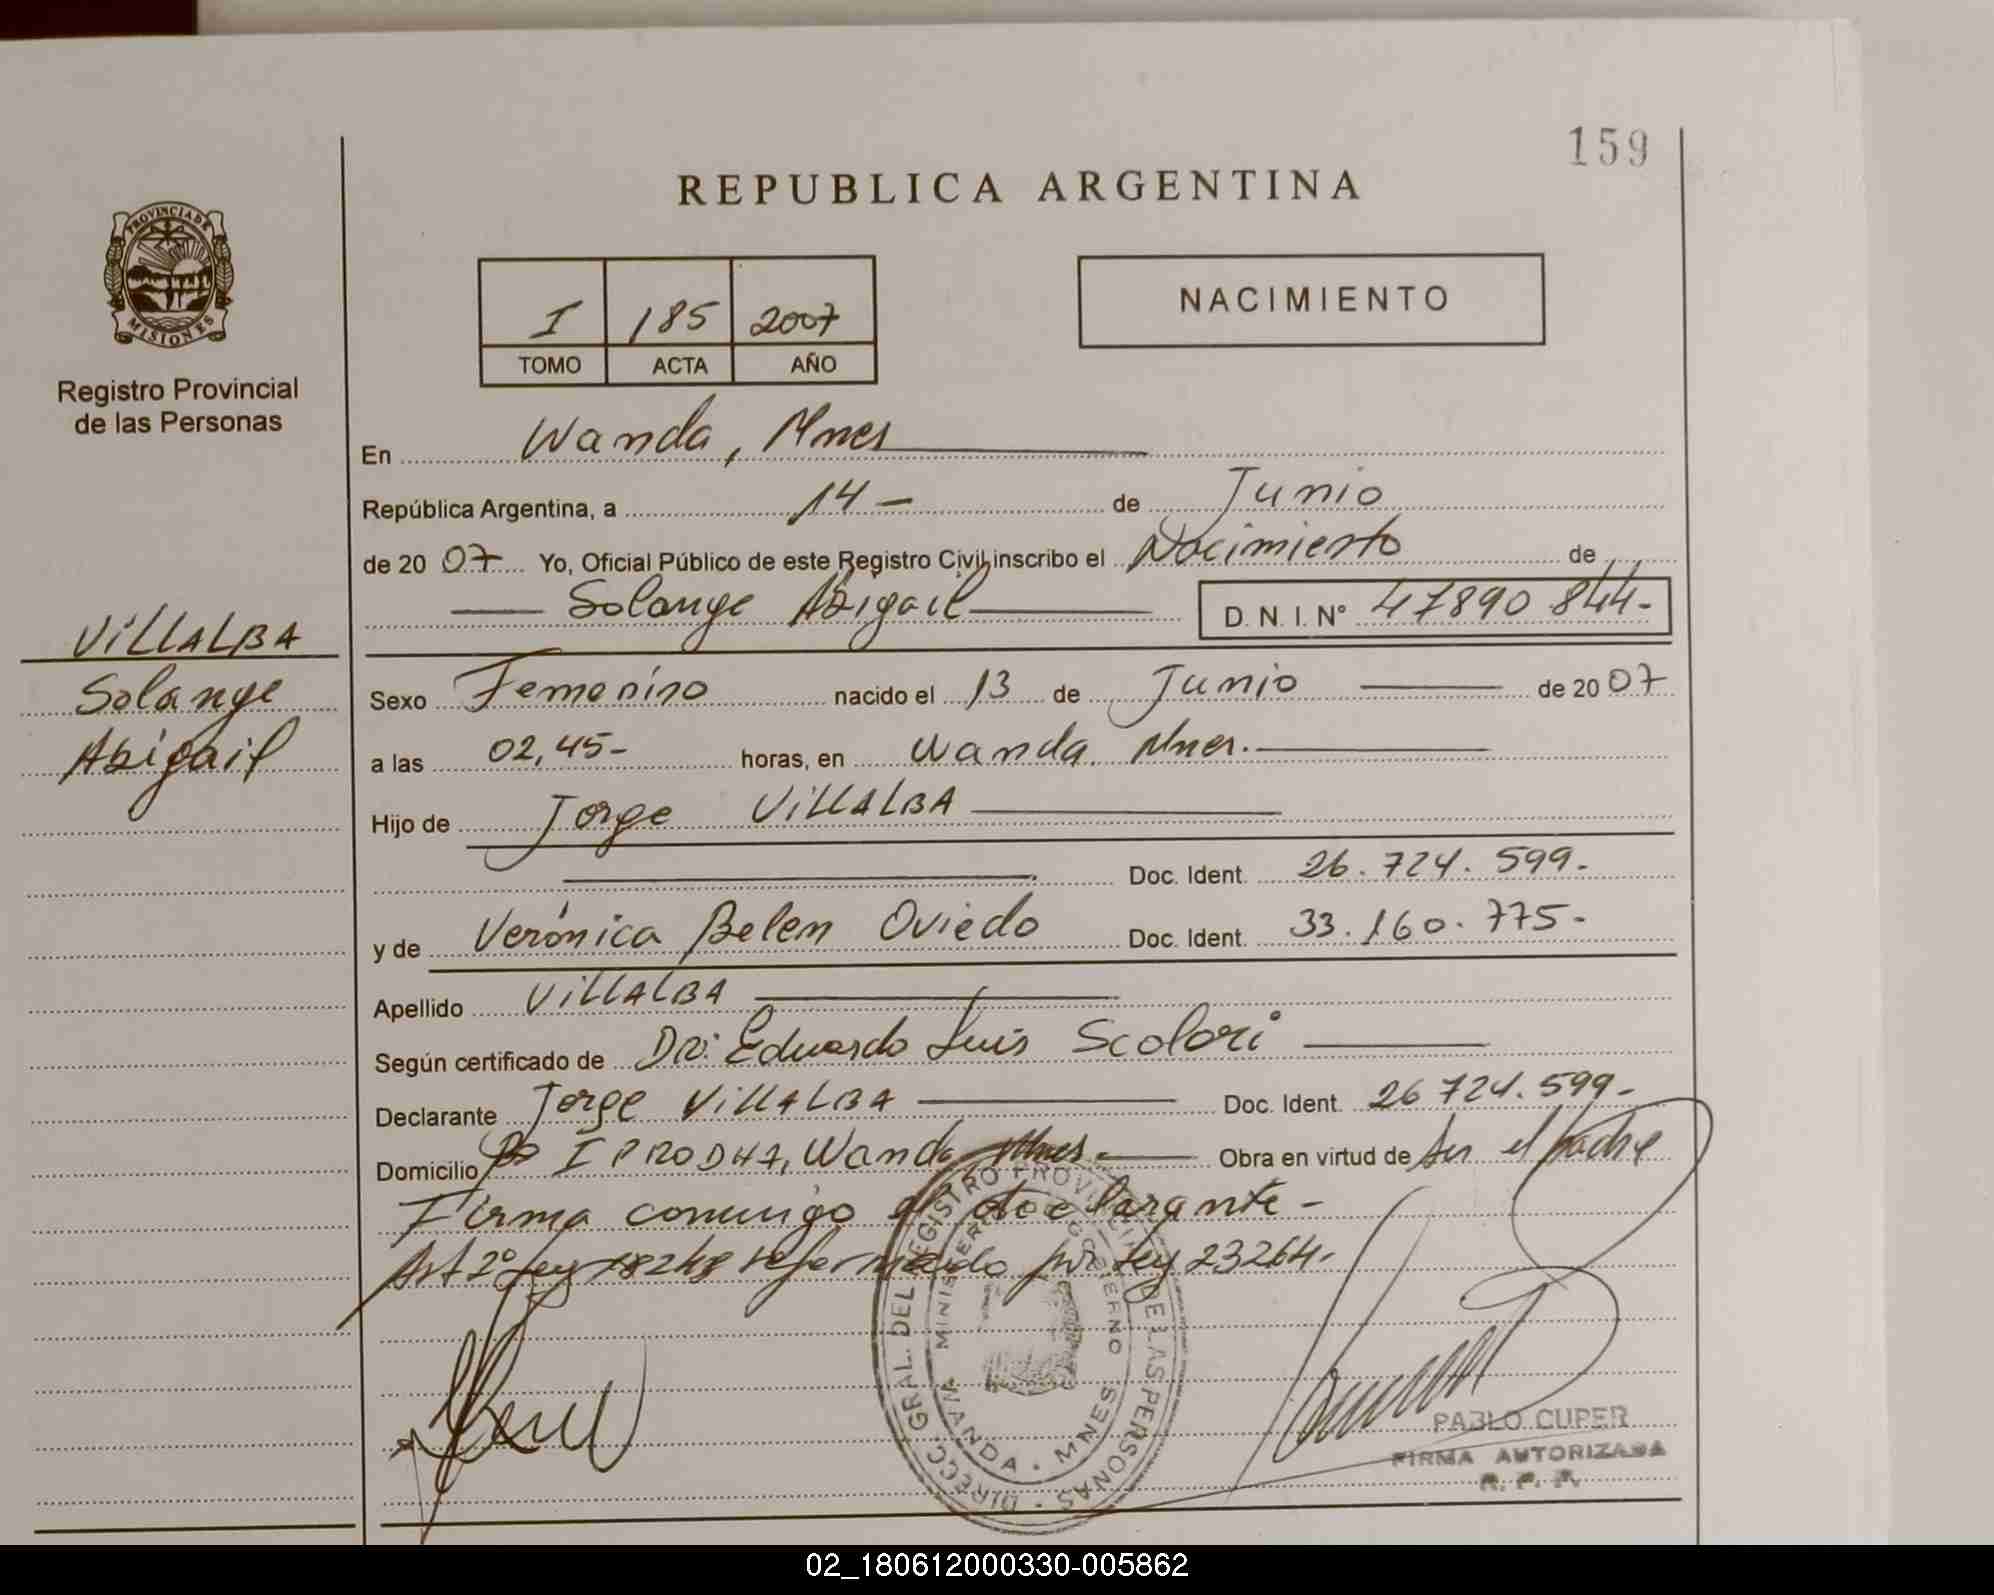 159
REPUBLICA ARGENTINA
PROVINCIA DE
MISIONES
Registro Provincial
de las Personas
I 185 2007
TOMO ACTA AÑO
NACIMIENTO
En Wanda, Mnes
República Argentina, a 14 - de Junio
de 2007 Yo, Oficial Público de este Registro Civil inscribo el Nacimiento de
Solange Abigail D. N. I. N° 47890 844-
VILLALBA
Solange
Abigail
Sexo Femenino nacido el 13 de Junio de 2007
a las 02,45- horas, en Wanda, Mnes.
Hijo de Jorge VILLALBA
Doc. Ident. 26.724.599-
y de Verónica Belen Oviedo Doc. Ident. 33.160.775-
Apellido VILLALBA
Según certificado de Dr: Eduardo Luis Scolari
Declarante Jorge VILLALBA Doc. Ident. 26 724.599-
Domicilio Bº I PRODHA, Wanda Mnes. Obra en virtud de ser el padre
Firma conmigo el declarante -
Art 2º Ley 18248 reformado por Ley 23264-
DIRECC. GRAL. DEL REGISTRO PROVINCIAL DE LAS PERSONAS
MINISTERIO DE GOBIERNO
WANDA - MNES
PABLO CUPER
FIRMA AUTORIZADA
R. P. P.
02_180612000330-005862